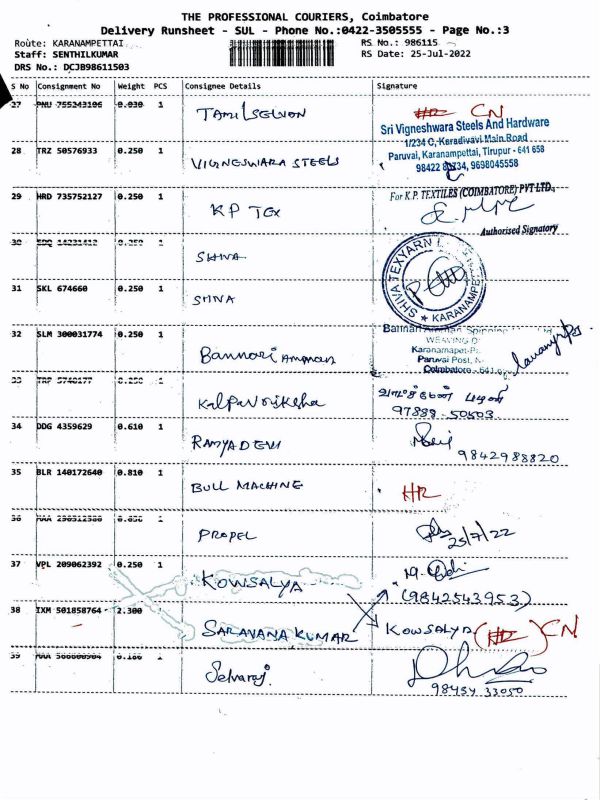 THE PROFESSIONAL COURIERS, Coimbatore
Delivery Runsheet - SUL - Phone No.:0422-3505555 - Page No.:3
Route: KARANAMPETTAI
RS No.: 986115
Staff: SENTHILKUMAR
RS Date: 25-Jul-2022
DRS No.: DCJB98611503
S No Consignment No Weight PCS Consignee Details Signature
27 PNU 755243106 0.030 1 TAMILSELVON HR CN
Sri Vigneshwara Steels And Hardware
1/234 C, Karadivavi Main Road
Paruvai, Karanampettai, Tirupur - 641 658
28 TRZ 50576933 0.250 1 VIGNESWARA STEELS
9698045558
29 HRD 735752127 0.250 1 K P TEX
For K.P. TEXTILES (COIMBATORE) PVT LTD.,
Authorised Signatory
30 1 SHIVA
SHIVA TEXYARN
KARANAMPET
31 SKL 674660 0.250 1 SHIVA
32 SLM 300031774 0.250 1 Bannari Amman
Bannari Amman
WEAVING
Karanampet
Paruvai Post,
Coimbatore - 641
33 1 Kalpavriksha
97888-50503
34 DDG 4359629 0.610 1 RAMYADEVI
9842988820
35 BLR 140172640 0.810 1 BULL MACHINE HR
36 1 PROPEL
25/7/22
37 VPL 209062392 0.250 1 KOWSALYA
(9842543953)
38 IXM 501858764 2.300 SARAVANA KUMAR KOWSALYA (HR) CN
39 1 Selvaraj
98454 33050